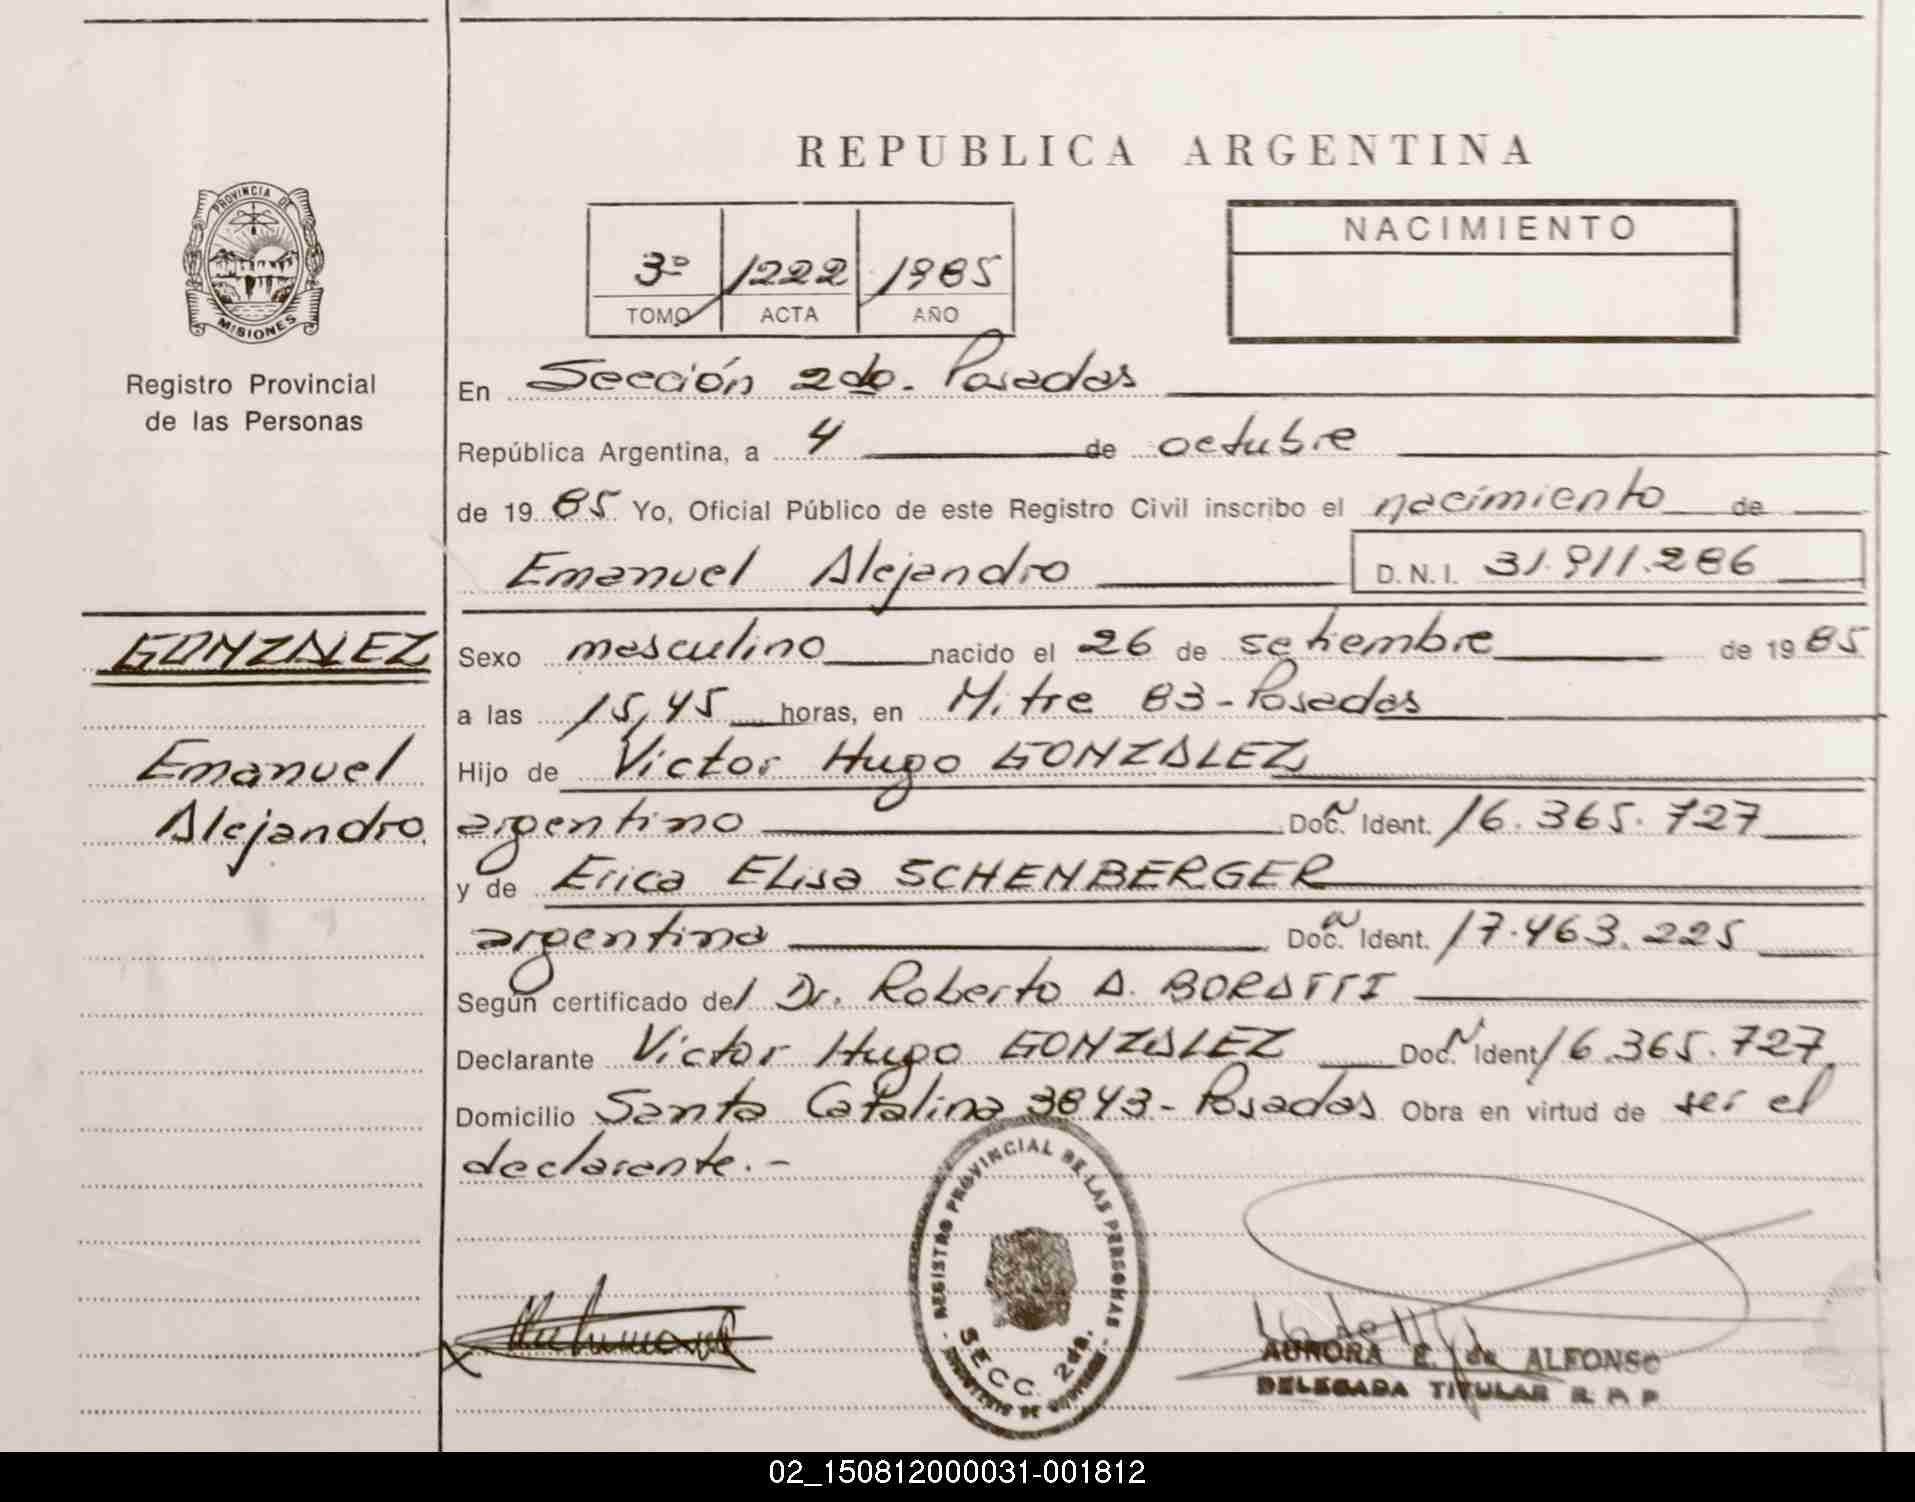 REPUBLICA ARGENTINA
PROVINCIA DE
MISIONES
Registro Provincial
de las Personas
3º 1222 1985
TOMO ACTA AÑO
NACIMIENTO
En Sección 2da. Posadas
República Argentina, a 4 de octubre
de 1985 Yo, Oficial Público de este Registro Civil inscribo el nacimiento de
Emanuel Alejandro D.N.I. 31.911.286
GONZALEZ
Emanuel
Alejandro
Sexo masculino nacido el 26 de setiembre de 1985
a las 15,45 horas, en Mitre 83-Posadas
Hijo de Victor Hugo GONZALEZ
argentino Doc. Ident. 16.365.727
y de Erica ELisa SCHEMBERGER
argentina Doc. Ident. 17.463.225
Según certificado del Dr. Roberto A. BORATTI
Declarante Victor Hugo GONZALEZ Doc. Ident 16.365.727
Domicilio Santa Catalina 3843- Posadas Obra en virtud de ser el
declarante.-
REGISTRO PROVINCIAL DE LAS PERSONAS
SECC. 2da.
AURORA E. de ALFONSO
DELEGADA TITULAR R. P. P.
02_150812000031-001812